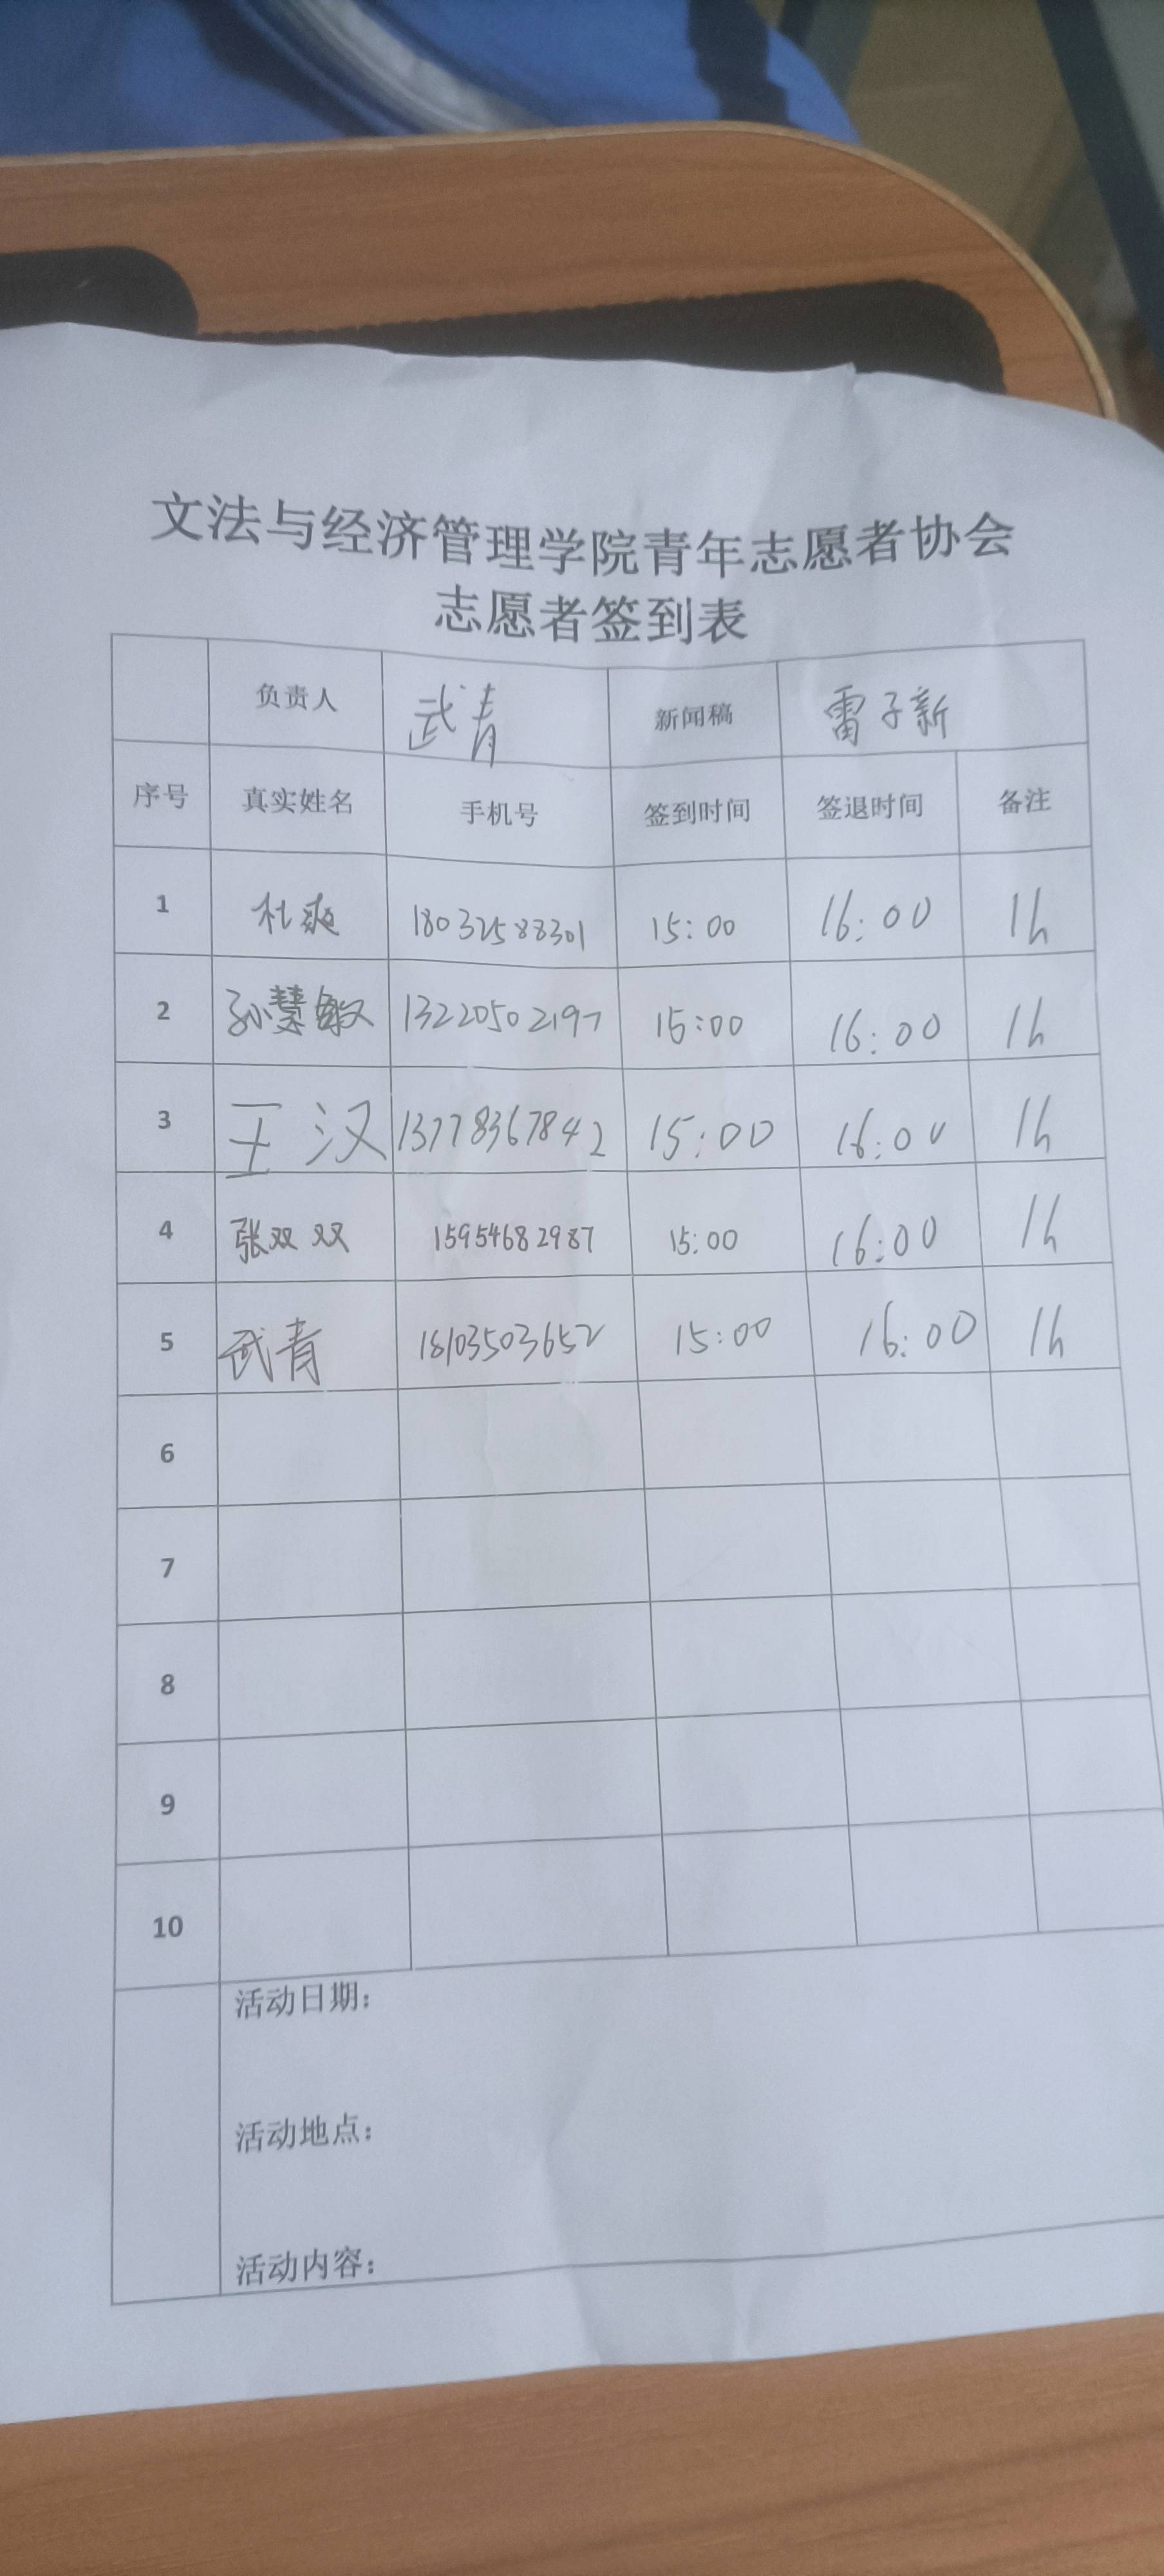 文法与经济管理学院青年志愿者协会
志愿者签到表
负责人 武青 新闻稿 雷子新
序号 真实姓名 手机号 签到时间 签退时间 备注
1 杜爽 18032588301 15:00 16:00 1h
2 孙慧敏 13220502197 15:00 16:00 1h
3 王汉 13778367842 15:00 16:00 1h
4 张双双 15954682987 15:00 16:00 1h
5 武青 18103503652 15:00 16:00 1h
6
7
8
9
10
活动日期：
活动地点：
活动内容：